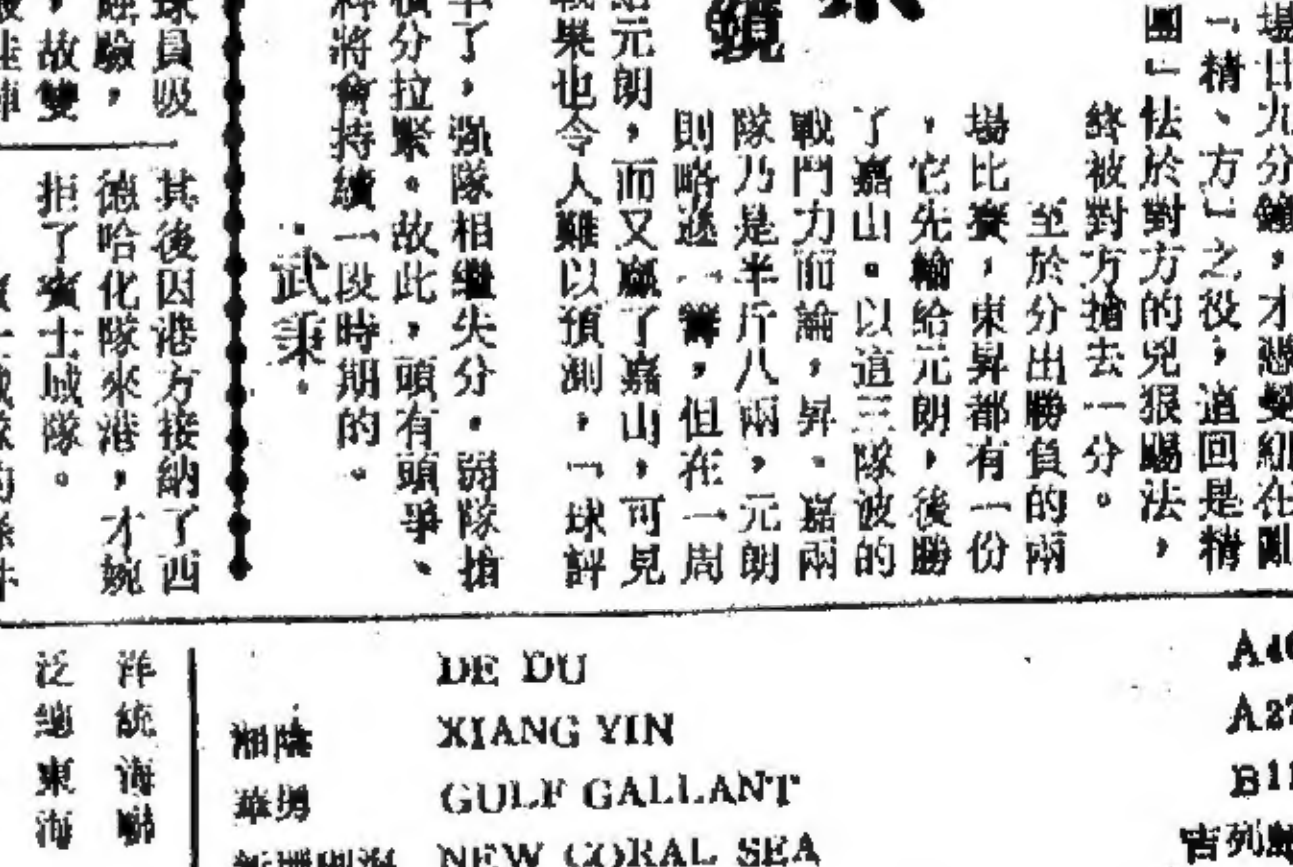 場廿九分鐘，才
「精、方」之役，這回是精
團」怯於對方的兇狠踢法，
終被對方搶去一分。
至於分出勝負的兩
場比賽，東昇都有一份
，它先輸給元朗，後勝
了嘉山。以這三隊波的
戰鬥力而論，昇。嘉兩
隊乃是半斤八兩，元朗
則略遜一籌，但在一周
鏡
給元朗，而又贏了嘉山，可見
戰果也令人難以預測，「球評
了，強隊相繼失分，弱隊搶
積分拉緊。故此，頭有頭爭、
料將會持續一段時期的。
·武秉·
球員吸
驗，
，故雙
其後因港方接納了西
德哈化隊來港，才婉
拒了賓士域隊。
洋統海聯
泛總東海
DE DU
湘陰 XIANG YIN
華勇 GULF GALLANT
NEW CORAL SEA
A2
B11
吉列